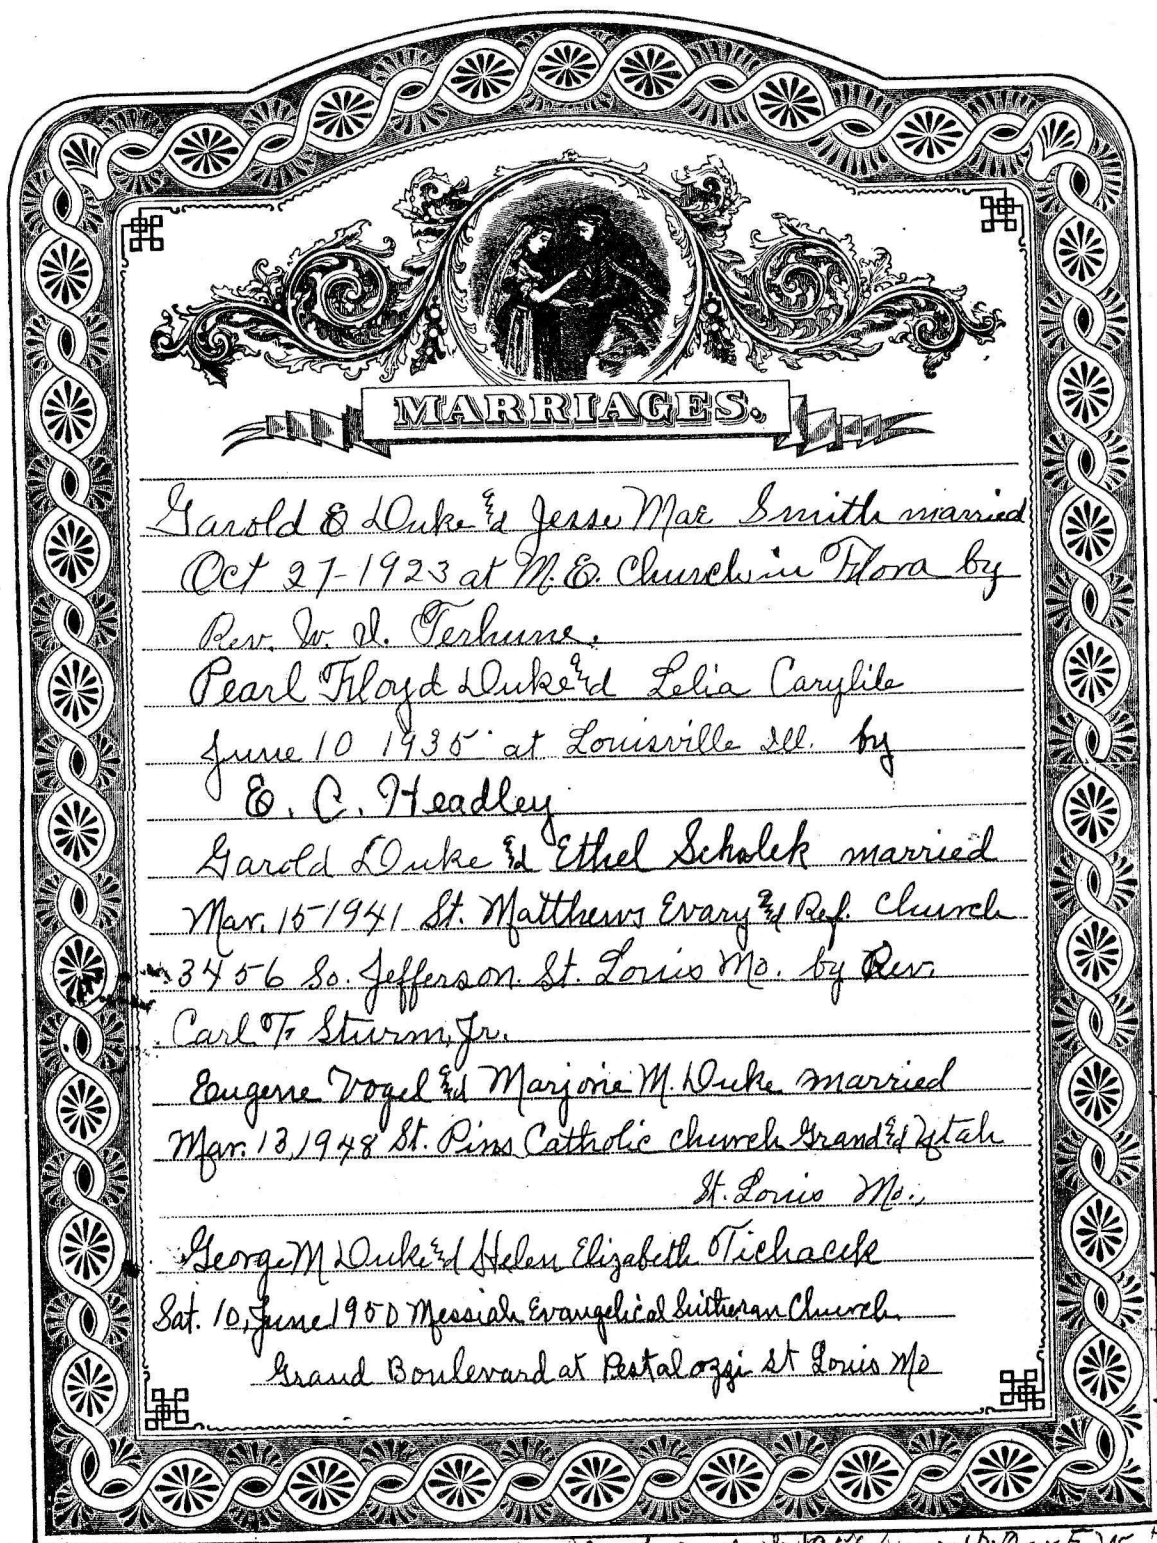 MARRIAGES.
Garold E Duke & Jesse Mae Smith married
Oct 27-1923 at M.E. Church in Flora by
Rev. W. I. Terhune.
Pearl Floyd Duke & Lelia Carylile
June 10 1935 at Louisville Ill. by
E. C. Headley
Garold Duke & Ethel Scholek married
Mar. 15-1941 St. Matthews Evary & Ref. Church
3456 So. Jefferson. St. Louis Mo. by Rev.
Carl F Sturm, Jr.
Eugene Vogel & Marjorie M. Duke married
Mar. 13, 1948 St. Pius Catholic church Grand & Utah
St. Louis Mo.,
George M Duke & Helen Elizabeth Tichacek
Sat. 10, June 1950 Messiah Evangelical Lutheran Church
Grand Boulevard at Pestalozzi St Louis Mo